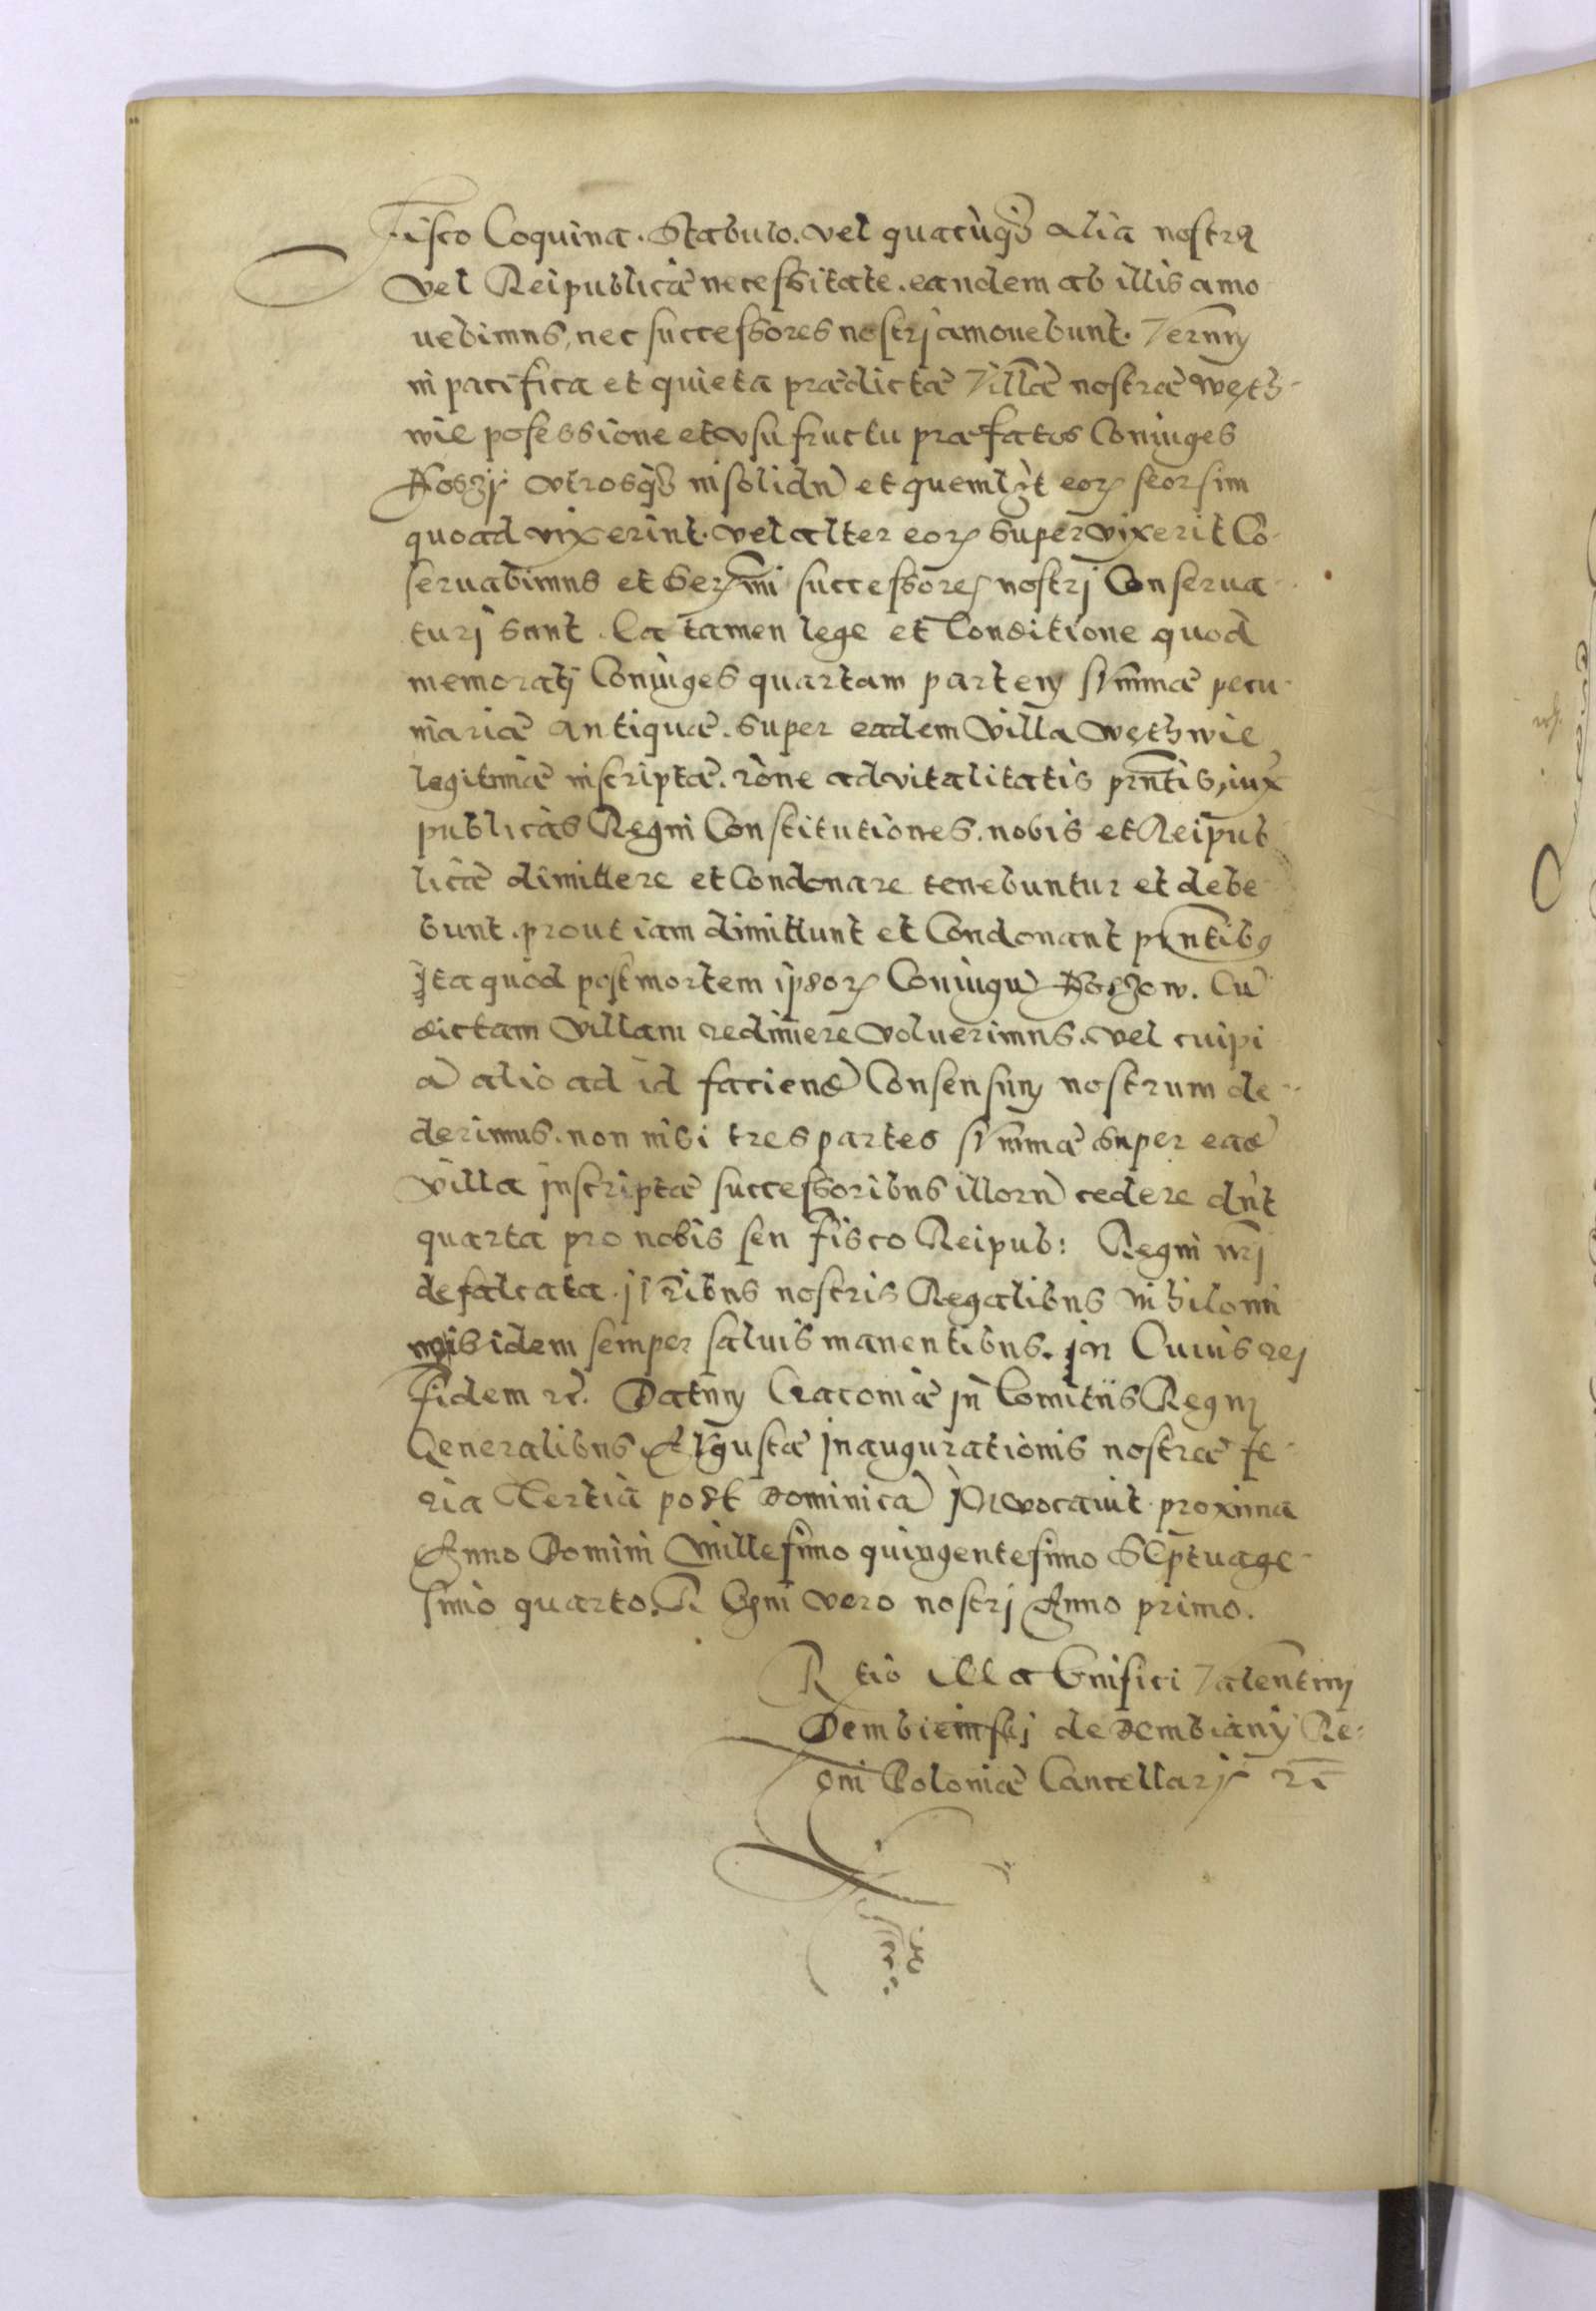 Fisco Coquina. Stabulo. vel quacùq3 alia nostra
vel Reipublicæ necessitate. eandem ab illis amo
uebimus, nec successores nostrj amouebunt. Verum
in pacifica et quieta prædictæ Villæ nostræ węth-
wie possessione et vsufructu præfatos Coniuges
utrosq3 insolidũ et quemlꝫt eoꝝ seorsim
quoad vixerint. vel alter eoꝝ supervixerit Co-
seruabimus et Serꝫmi successores nostrj Conserua-
turj sunt. Ea tamen lege et Conditione quod
memoratj Coniuges quartam partem sũmmæ pecu-
niariæ antiquæ. super eadem Villa węthwie
legitimæ inscriptæ. rõne advitalitatis prñtis, iux
publicas Regni Constitutiones. nobis et Reipub
licæ dimittere et Condonare tenebuntur et debe-
bunt. prout iam dimittunt et Condonant prñtibꝰ
Jta quod post mortem ipsoꝝ Coniugũ. Cũ
dictam Villam redimere voluerimus. vel cuipi
ã alio ad id faciend̃ Consensum nostrum de-
derimus. non nisi tres partes sũmmæ super ead̃
villa inscriptæ successoribus illorũ cedere dn̄t
quarta pro nobis seu fisco Reipub: Regni nr̃j
defalcata. Juribus nostris Regalibus nihilomi
nus ibidem semper saluis manentibus. jn Cuius rej
fidem ꝛc̃. Datum Cracoviæ jn Comitiis Regnj
Generalibus Augustæ Jnaugurationis nostræ fe-
ria Tertia post Dominicã Jnvocauit proxima
Anno Domini Millesimo quingentesimo Septuage-
simo quarto. Regni vero nostrj Anno primo.
Rtio illa Gnifici Valentini
Dembieinskj de Dembiany Re-
gni Poloniæ Cancellarij ꝛc̃